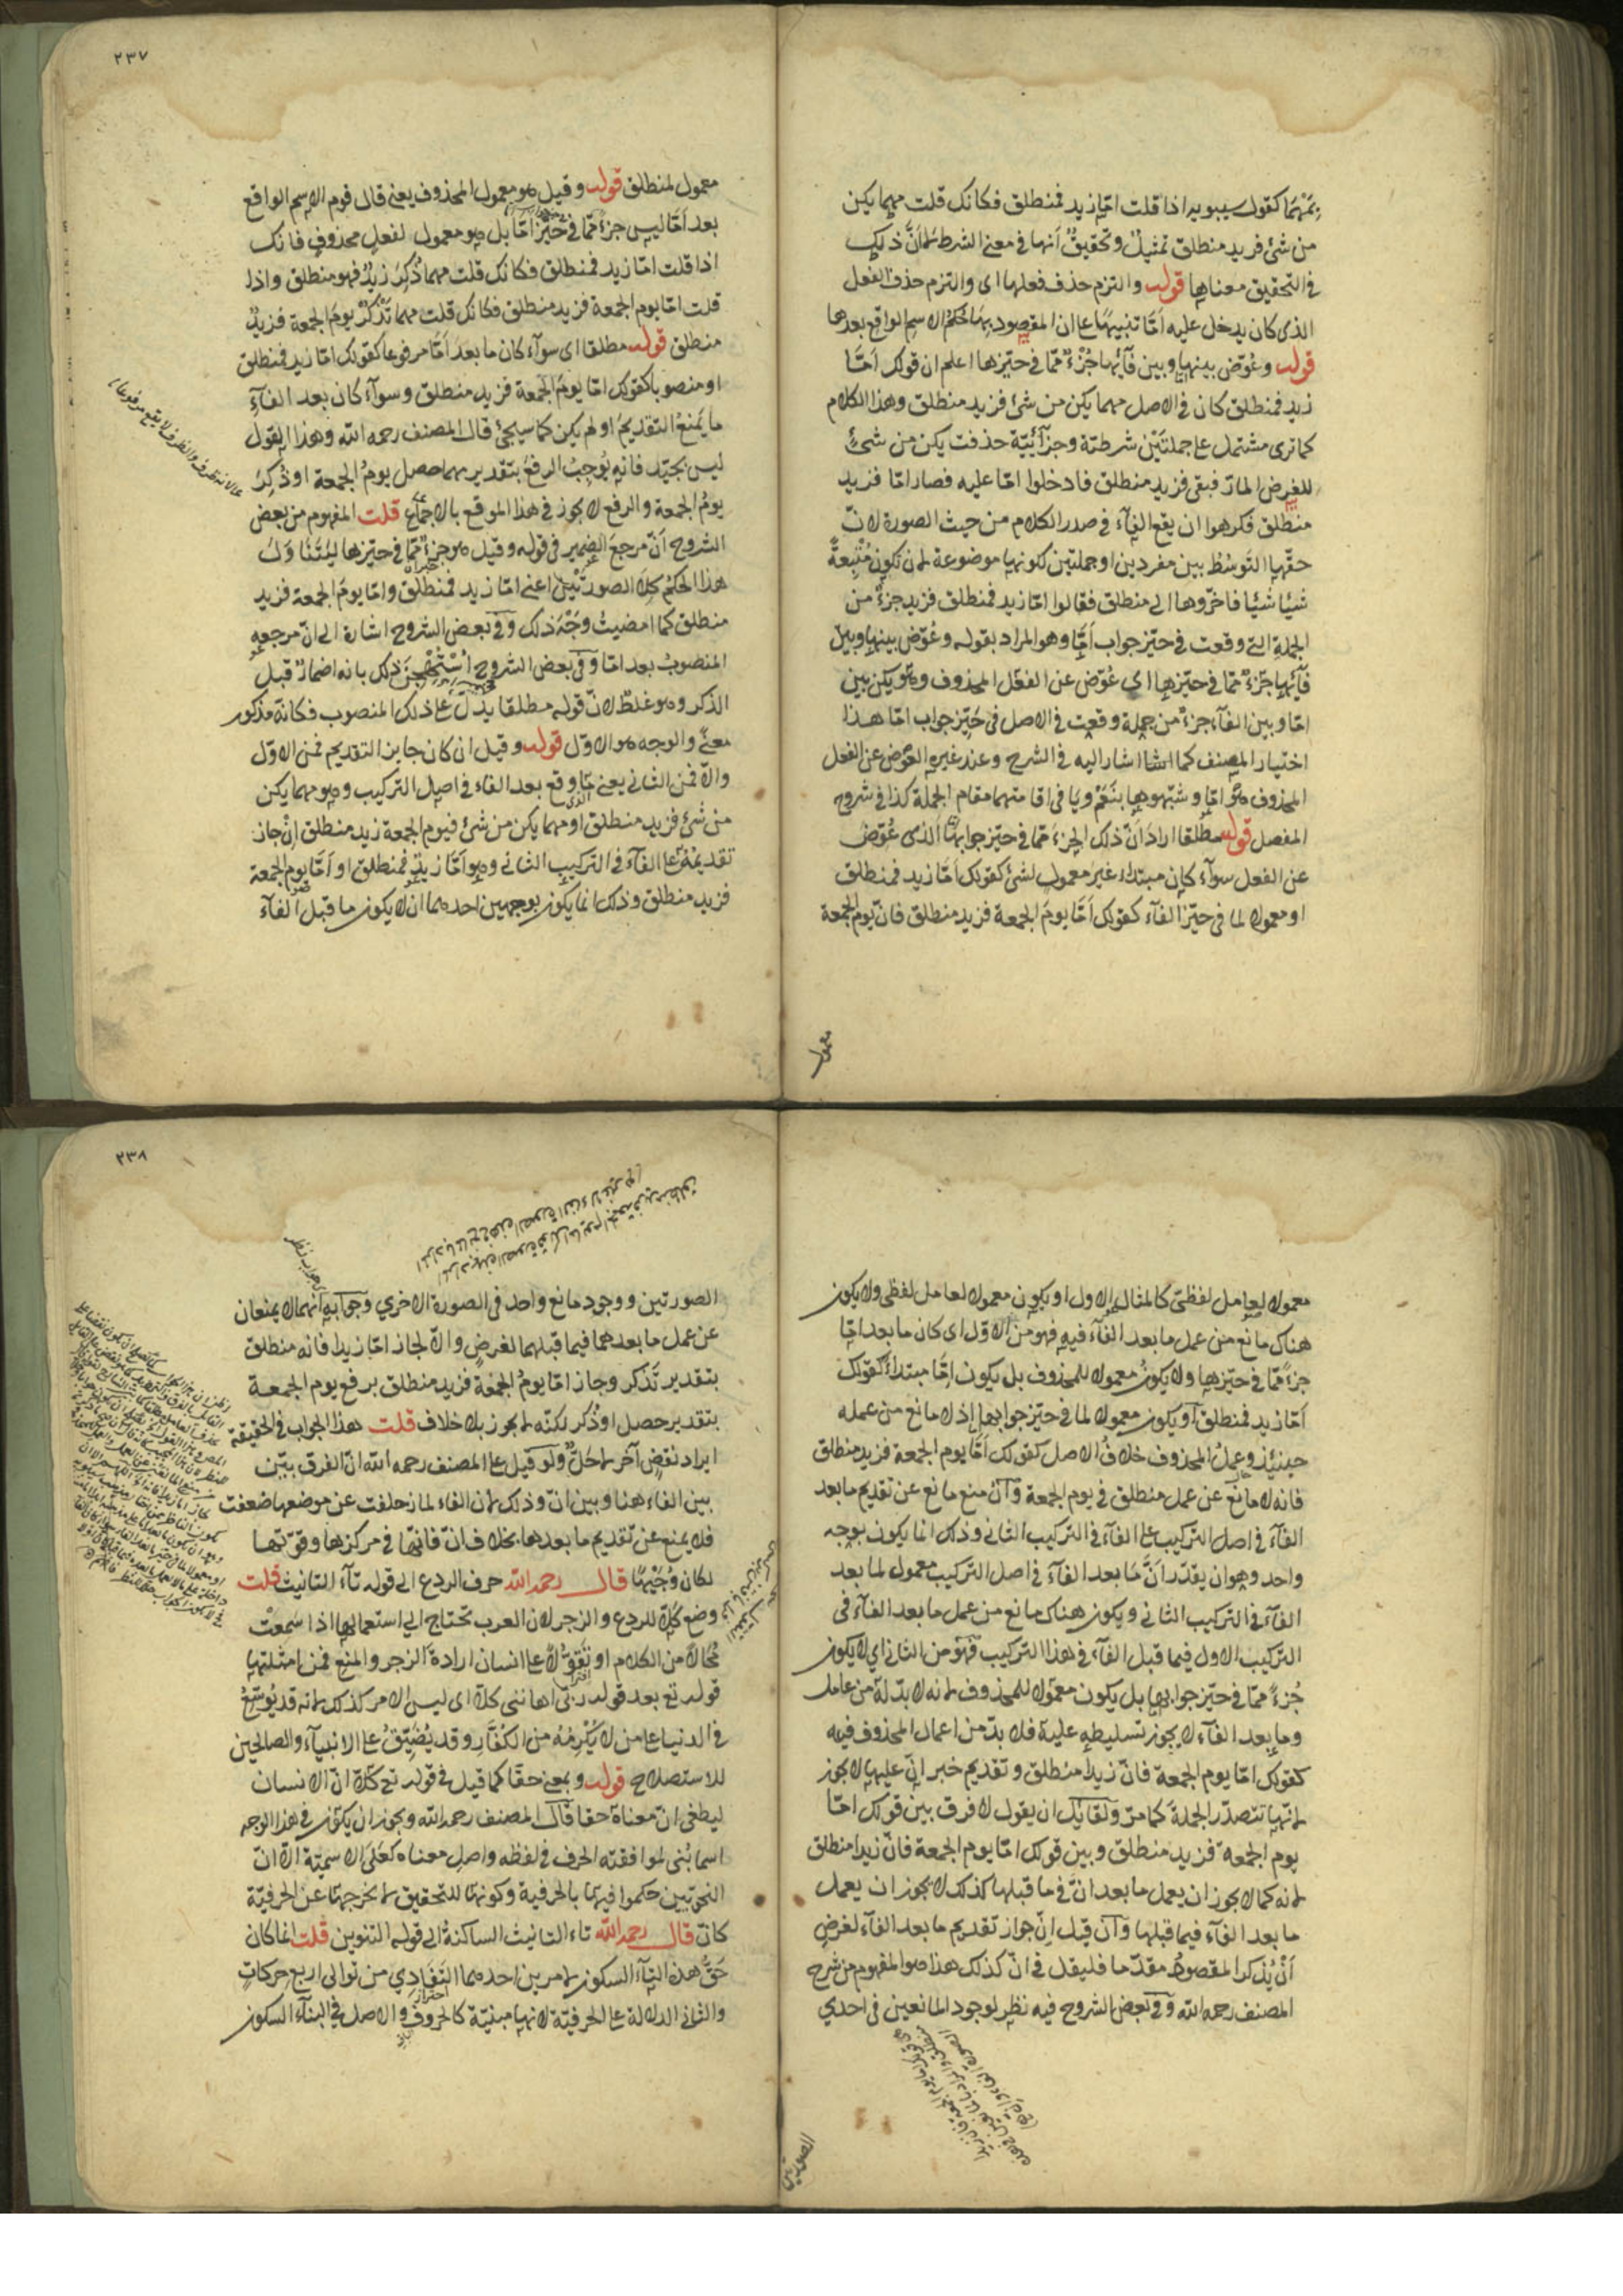 بمَهْمَا كقول سيبويه اذا قلت امّا زيد فمنطلق فكانك قلت مهما يكن
من شئ فزيد منطلق تمثيلٌ وتحقيقٌ أنها في معنى الشرط لا انَّ ذلك
في التحقيق معناها قوله والتزم حذف فعلها اى والتزم حذف الفعل
الذى كان يدخل عليه اَمّا تنبيهًا على ان المقصود بها حكم الاسم الواقع بعدها
قوله وعُوّض بينها وبين فآئها جُزْءٌ ممّا في حيّزها اعلم ان قولك اَمّا
زيد فمنطلق كان في الاصل مهما يكن من شئ فزيد منطلق وهذا الكلام
كما ترى مشتمل على جملتَيْن شرطيّة وجزآئيّة حذفت يكن من شئٍ
للغرض المارّ فبقى فزيد منطلق فادخلوا امّا عليه فصار امّا فزيد
منطلق فكرهوا ان يقع الفآء في صدر الكلام من حيث الصورة لانّ
حقّها التوسُّطُ بين مفردين او جملتين لكونها موضوعة لان تكون مُتْبِعةً
شيئا شيئا فاخّروها الى منطلق فقالوا امّا زيد فمنطلق فزيد جزءٌ من
الجملة التى وقعت في حيّز جواب اَمّا وهو المراد بقوله وعُوّض بينها وبين
فآئها جزءٌ ممّا في حيّزها اى عُوّض عن الفعل المحذوف وهو يكن بين
امّا وبين الفآء جزءٌ من جملة وقعت في الاصل في حيّز جواب امّا هذا
اختيار المصنف كما اشار اليه في الشرح وعند غيره العوض عن الفعل
المحذوف هو امّا وشبّهوها بنَعَمْ ويا في اقامتهما مقام الجملة كذا في شروح
المفصل قوله مطلقا اراد انّ ذلك الجزء ممّا في حيّز جوابها الذى عُوّض
عن الفعل سوآء كان مبتداء غير معمول لشئ كقولك اَمّا زيد فمنطلق
او معمولا لما في حيّز الفآء كقولك اَمّا يومَ الجمعة فزيد منطلق فانّ يوم الجمعة
معمول
٢٣٧
معمول لمنطلق قوله وقيل هو معمول المحذوف يعنى قال قوم الاسم الواقع
بعد اَمّا ليس جزءً ممّا في حيّز امّا بل هو معمول لفعلٍ محذوفٍ فانك
اذا قلت امّا زيد فمنطلق فكانك قلت مهما ذُكِرَ زيدٌ فهو منطلق واذا
قلت امّا يوم الجمعة فزيد منطلق فكانك قلت مهما تذكر يوم الجمعة فزيدٌ
منطلق قوله مطلقا اى سوآء كان ما بعد اَمّا مرفوعا كقولك امّا زيد فمنطلق
او منصوبا كقولك امّا يوم الجمعة فزيد منطلق وسوآء كان بعد الفآءِ
ما يَمْنعُ التقديمَ او لم يكن كما سيجئ قال المصنف رحمه الله وهذا القول
ليس بجيّد فانه يُوجِبُ الرفعَ بتقدير مهما حصل يومُ الجمعة او ذُكِرَ
يومُ الجمعة والرفع لا يجوز في هذا الموقع بالاجماع قلت المفهوم من بعض
الشروح اَنّ مرجعَ الضمير في قوله وقيل هو جزءٌ ممّا في حيّزها
هذا الحكم كِلا الصورتَيْن اعنى امّا زيد فمنطلق وامّا يومَ الجمعة فزيد
منطلق كما امضيتُ وَجْهَ ذلك وفى بعض الشروح اشارة الى انّ مرجعه
المنصوبُ بعد امّا وفى بعض الشروح اُسْتُهْجِنَ ذلك بانه اضمارٌ قبل
الذكر وهو غلطٌ لانّ قوله مطلقا يدلّ على ذلك المنصوب فكانّه مذكور
معنًى والوجه هو الاوّل قوله وقيل ان كان جايز التقديم فمن الاوّل
والّا فمن الثانى يعنى ما وقع بعد الفاء في اصل التركيب وهو مهما يكن
من شئ فزيد منطلق او مهما يكن من شئ فيوم الجمعة زيد منطلق إن جاز
تقديمُهُ على الفآء في التركيب الثانى وهو اَمّا زيدٌ فمنطلق او اَمّا يوم الجمعة
فزيد منطلق وذلك انما يكون بوجهين احدهما ان لا يكون ما قبل الفآء
معمولا لعامل لفظىّ كالمثال الاول او يكون معمولا لعامل لفظى ولا يكون
هناك مانع من عمل ما بعد الفآء فيه فهو من الاوّل اى كان ما بعد امّا
جزءً ممّا في حيّزها ولا يكون معمولا للمحذوف بل يكون اِمّا مبتداءً كقولك
اَمّا زيد فمنطلق او يكون معمولا لما في حيّز جوابها إذ لا مانع من عمله
حينئذ وعملُ المحذوف خلافُ الاصل كقولك اَمّا يوم الجمعة فزيد منطلق
فانه لا مانع عن عمل منطلق في يوم الجمعة وان منع مانع عن تقديم ما بعد
الفآء في اصل التركيب على الفآء في التركيب الثانى وذلك انما يكون بوجه
واحد وهو ان يقدّر اَنّ ما بعد الفآء في اصل التركيب معمول لما بعد
الفآء في التركيب الثانى ويكون هناك مانع من عمل ما بعد الفآء في
التركيب الاول فيما قبل الفآء في هذا التركيب فهو من الثانى اى لا يكون
جُزءً ممّا في حيّز جوابها بل يكون معمولا للمحذوف لانه لا بدّ له من عامل
وما بعد الفآء لا يجوز تسليطه عليه فلا بدّ من اعمال المحذوف فيه
كقولك امّا يوم الجمعة فانّ زيدا منطلق وتقديم خبر انّ عليها لا يجوز
لانّها تتصدّر الجملةَ كما مرّ ولقائل ان يقول لا فرق بين قولك امّا
يوم الجمعة فزيد منطلق وبين قولك امّا يوم الجمعة فانّ زيدا منطلق
لانه كما لا يجوز ان يعمل ما بعد انّ في ما قبلها كذلك لا يجوز ان يعمل
ما بعد الفآء فيما قبلها وان قيل انّ جواز تقديم ما بعد الفآء لغرضِ
اَنْ يُذكر المقصودُ مقدّما فليقل في انّ كذلك هذا هو المفهوم من شرح
المصنف رحمه الله وفى بعض الشروح فيه نظر لوجود المانعين في احدي
الصورتين
٢٣٨
الصورتين ووجود مانع واحد في الصورة الاخري وجوابه انهما لا يمنعان
عن عمل ما بعدهما فيما قبلهما لغرضٍ والّا لجاز امّا زيدا فانه منطلق
بتقدير تَذكر وجاز امّا يومُ الجمعة فزيد منطلق برفع يوم الجمعة
بتقدير حصل او ذُكر لكنّه لم يجوز بلا خلاف قلت هذا الجواب في الحقيقة
ايراد نقضٍ آخر لا حَلٌّ ولو قيل على المصنف رحمه الله انّ الفرق بيّن
بين الفاء هنا وبين انّ وذلك لان الفاء لما زحلفت عن موضعها ضعفت
فلا يمنع عن تقديم ما بعدها بخلاف انّ فانّها في مركزها وقوّتها
لكان وُجَيْهًا قال رحمه الله حرف الردع الى قوله تآء التانيث قلت
وضع كلّا للردع والزجر لان العرب تحتاج الى استعمالها اذا سَمِعتْ
مُحَالًا من الكلام او تَقَوُّلًا على انسان ارادةَ الزجر والمنع فمن امثلتها
قوله تع بعد قوله ربّى اهاننى كلّا اى ليس الامر كذلك لانه قد يُوَسِّعُ
في الدنيا على من لا يُكْرِمُهُ من الكُفَّار وقد يُضَيِّقُ على الانبيآء والصالحين
للاستصلاح قوله وبمعنى حقّا كما قيل في قوله تع كلّا انّ الانسان
ليطغى انّ معناهُ حقا قال المصنف رحمه الله ويجوز ان يكون في هذا الوجه
اسما بُنى لموافقته الحرف في لفظه واصل معناه كعَلَى الاسميّة الّا انّ
النحويّين حكموا فيها بالحرفية وكونها للتحقيق لم يخرجها عن الحرفيّة
كانّ قال رحمه الله تاء التانيث الساكنة الى قوله التنوين قلت انما كان
حَقُّ هذه التآء السكون لامرين احدهما التَفَادِي من توالى اربع حركات
والثانى الدلالة على الحرفيّة لانها مبنيّة كالحروف والاصل في البنآء السكون